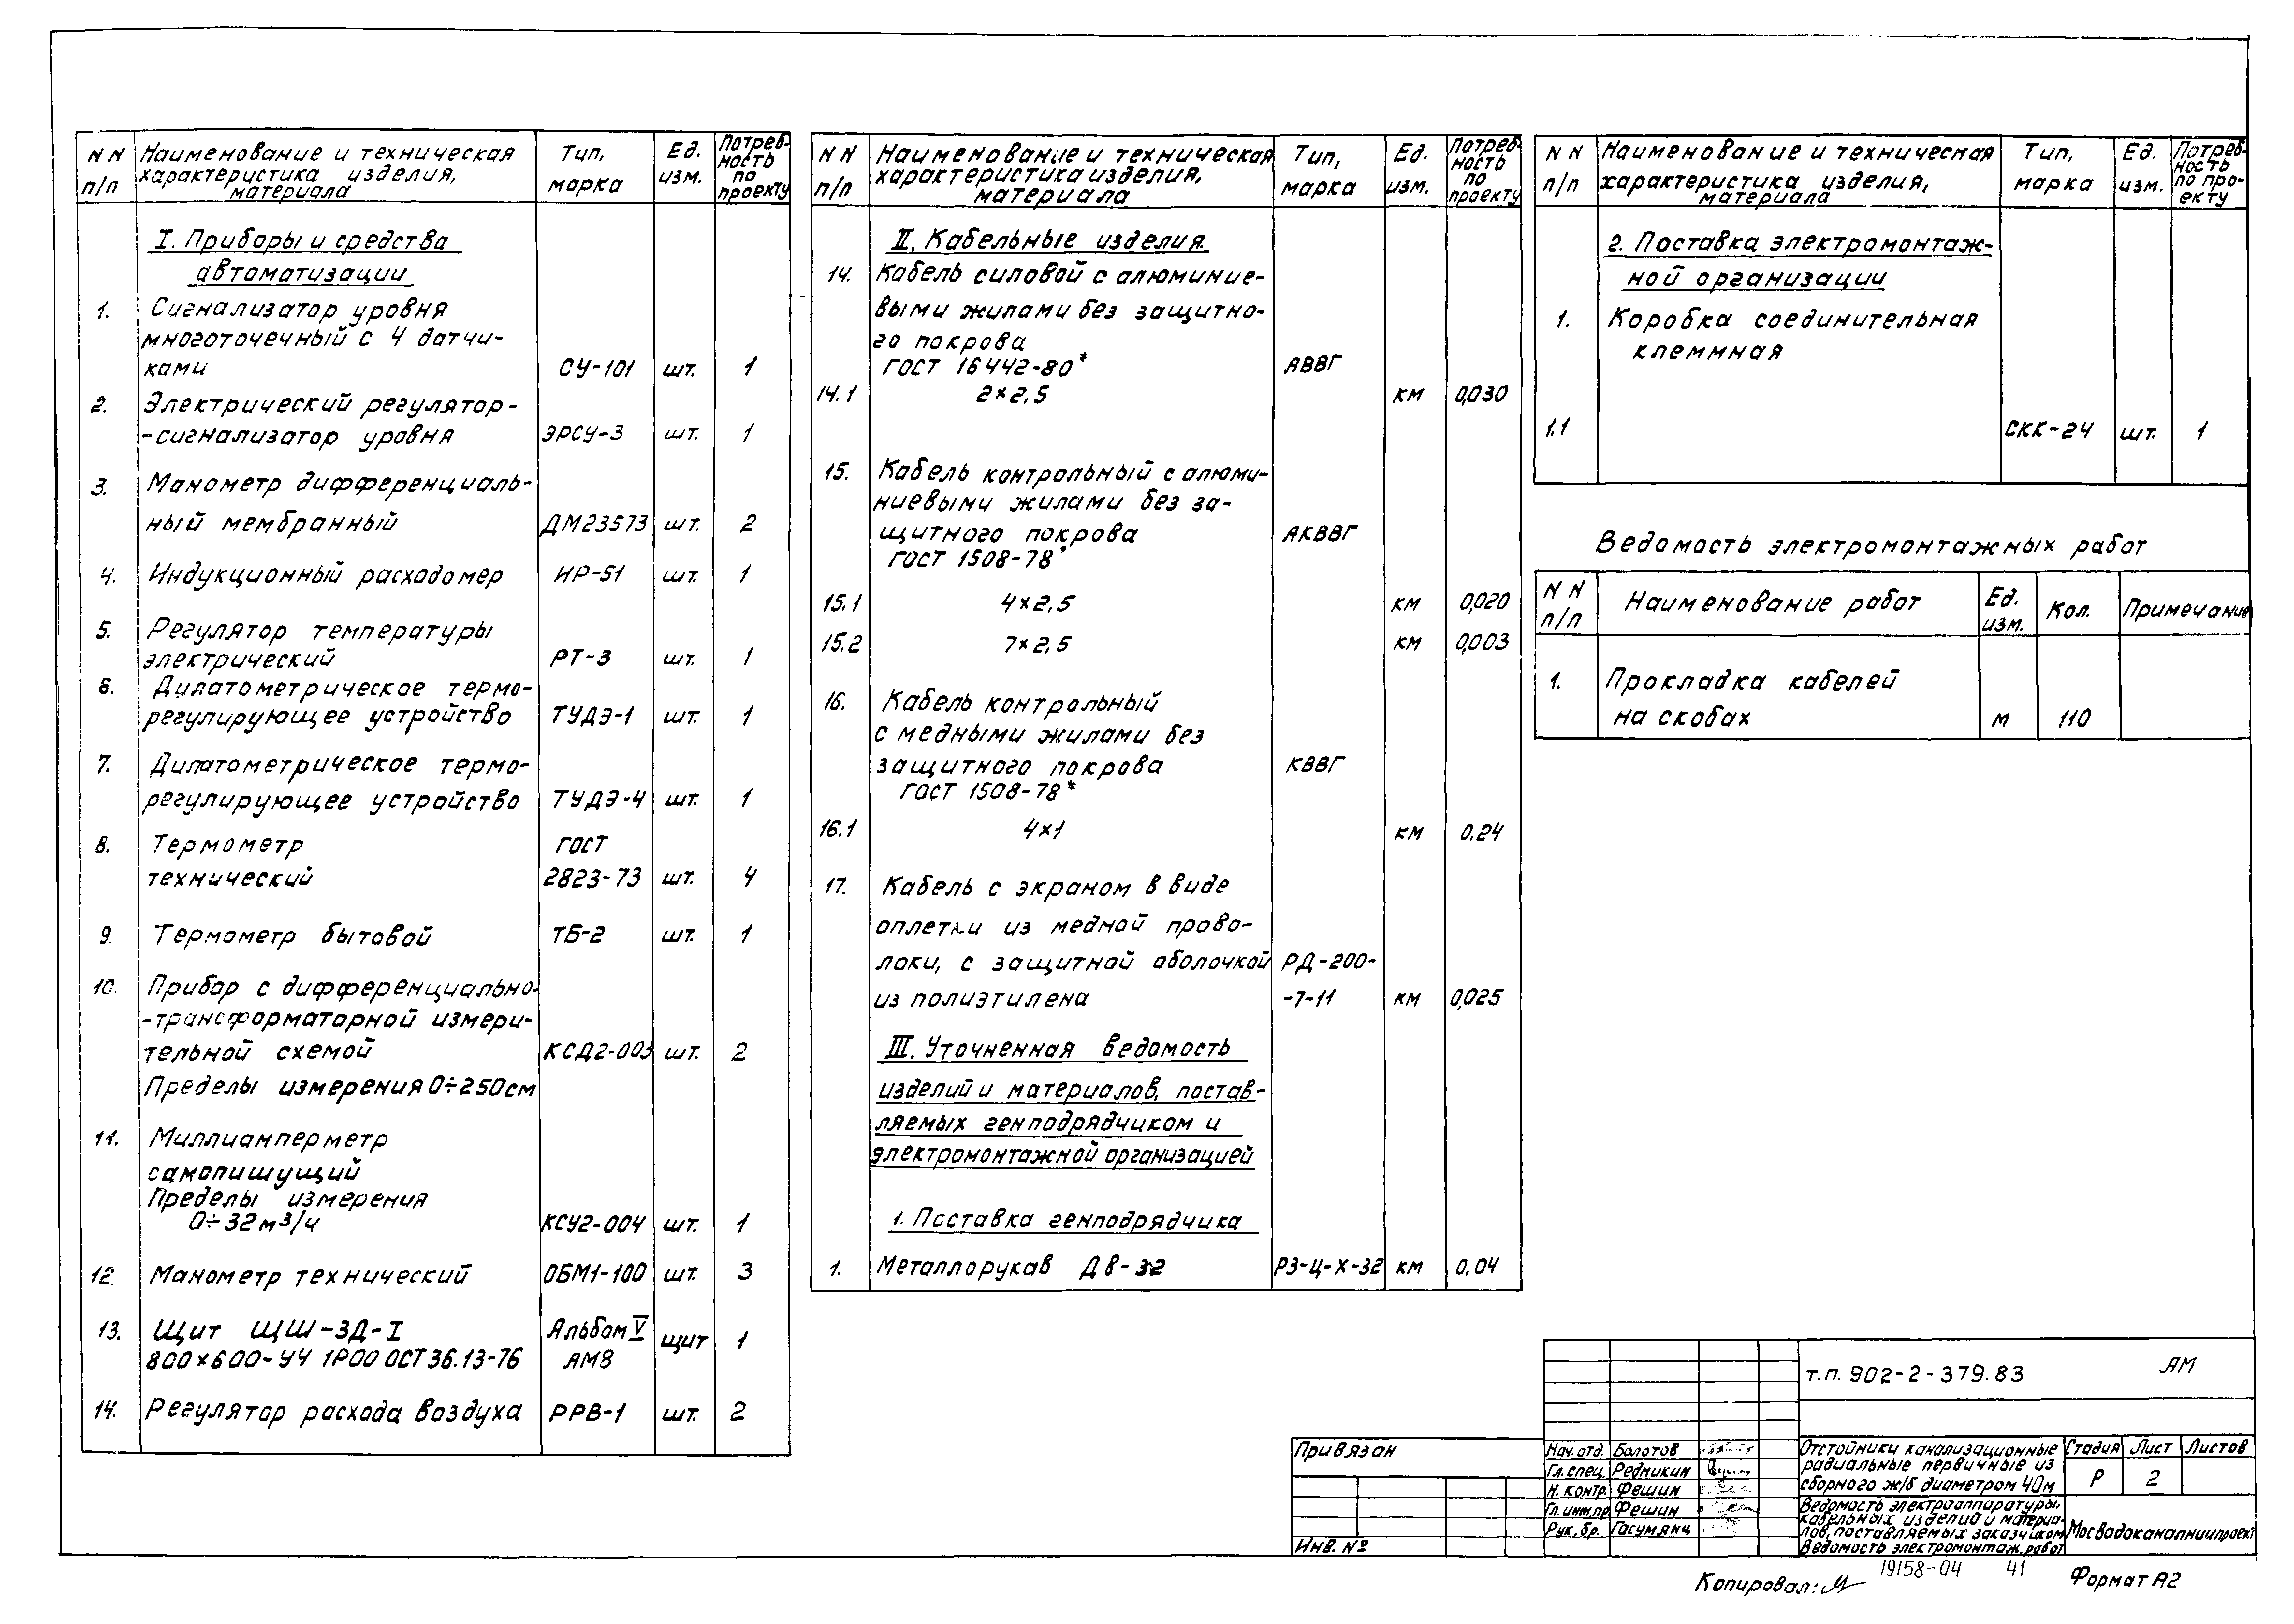 NN п/п Наименование и техническая характеристика изделия, материала Тип, марка Ед. изм. Потребность по проекту
I. Приборы и средства
автоматизации
1. Сигнализатор уровня
многоточечный с 4 датчи-
ками СУ-101 шт. 1
2. Электрический регулятор-
-сигнализатор уровня ЭРСУ-3 шт. 1
3. Манометр дифференциаль-
ный мембранный ДМ23573 шт. 2
4. Индукционный расходомер ИР-51 шт. 1
5. Регулятор температуры
электрический РТ-3 шт. 1
6. Дилатометрическое термо-
регулирующее устройство ТУДЭ-1 шт. 1
7. Дилатометрическое термо-
регулирующее устройство ТУДЭ-4 шт. 1
8. Термометр ГОСТ
технический 2823-73 шт. 4
9. Термометр бытовой ТБ-2 шт. 1
10. Прибор с дифференциально-
-трансформаторной измери-
тельной схемой КСД2-003 шт. 2
Пределы измерения 0÷250см
11. Миллиамперметр
самопишущий
Пределы измерения
0÷32м³/ч КСУ2-004 шт. 1
12. Манометр технический ОБМ1-100 шт. 3
13. Щит ЩШ-ЗД-I Альбом V щит 1
800×600-У4 1Р00 ОСТ 36.13-76 АМ8
14. Регулятор расхода воздуха РРВ-1 шт. 2
NN п/п Наименование и техническая характеристика изделия, материала Тип, марка Ед. изм. Потребность по проекту
II. Кабельные изделия.
14. Кабель силовой с алюминие-
выми жилами без защитно-
го покрова
ГОСТ 16442-80* АВВГ
14.1 2×2,5 км 0,030
15. Кабель контрольный с алюми-
ниевыми жилами без за-
щитного покрова АКВВГ
ГОСТ 1508-78*
15.1 4×2,5 км 0,020
15.2 7×2,5 км 0,003
16. Кабель контрольный
с медными жилами без
защитного покрова КВВГ
ГОСТ 1508-78*
16.1 4×1 км 0,24
17. Кабель с экраном в виде
оплетки из медной прово-
локи, с защитной оболочкой РД-200-
из полиэтилена -7-11 км 0,025
III. Уточненная ведомость
изделий и материалов, постав-
ляемых генподрядчиком и
электромонтажной организацией
1. Поставка генподрядчика
1. Металлорукав ДВ-32 РЗ-Ц-Х-32 км 0,04
NN п/п Наименование и техническая характеристика изделия, материала Тип, марка Ед. изм. Потребность по про-екту
2. Поставка электромонтаж-
ной организации
1. Коробка соединительная
клеммная
1.1 СКК-24 шт. 1
Ведомость электромонтажных работ
NN п/п Наименование работ Ед. изм. Кол. Примечание
1. Прокладка кабелей
на скобах м 110
т.п. 902-2-379.83 АМ
Привязан
Инв. №
Нач. отд. Болотов
Гл. спец. Редникин
Н. контр. Фешин
Гл. инж. пр. Фешин
Рук. бр. Гасумянц
Отстойники канализационные
радиальные первичные из
сборного ж/б диаметром 40м
Стадия Лист Листов
Р 2
Ведомость электроаппаратуры,
кабельных изделий и материа-
лов, поставляемых заказчиком
Ведомость электромонтаж. работ
Мосводоканалниипроект
Копировал: 19158-04 41 Формат А2